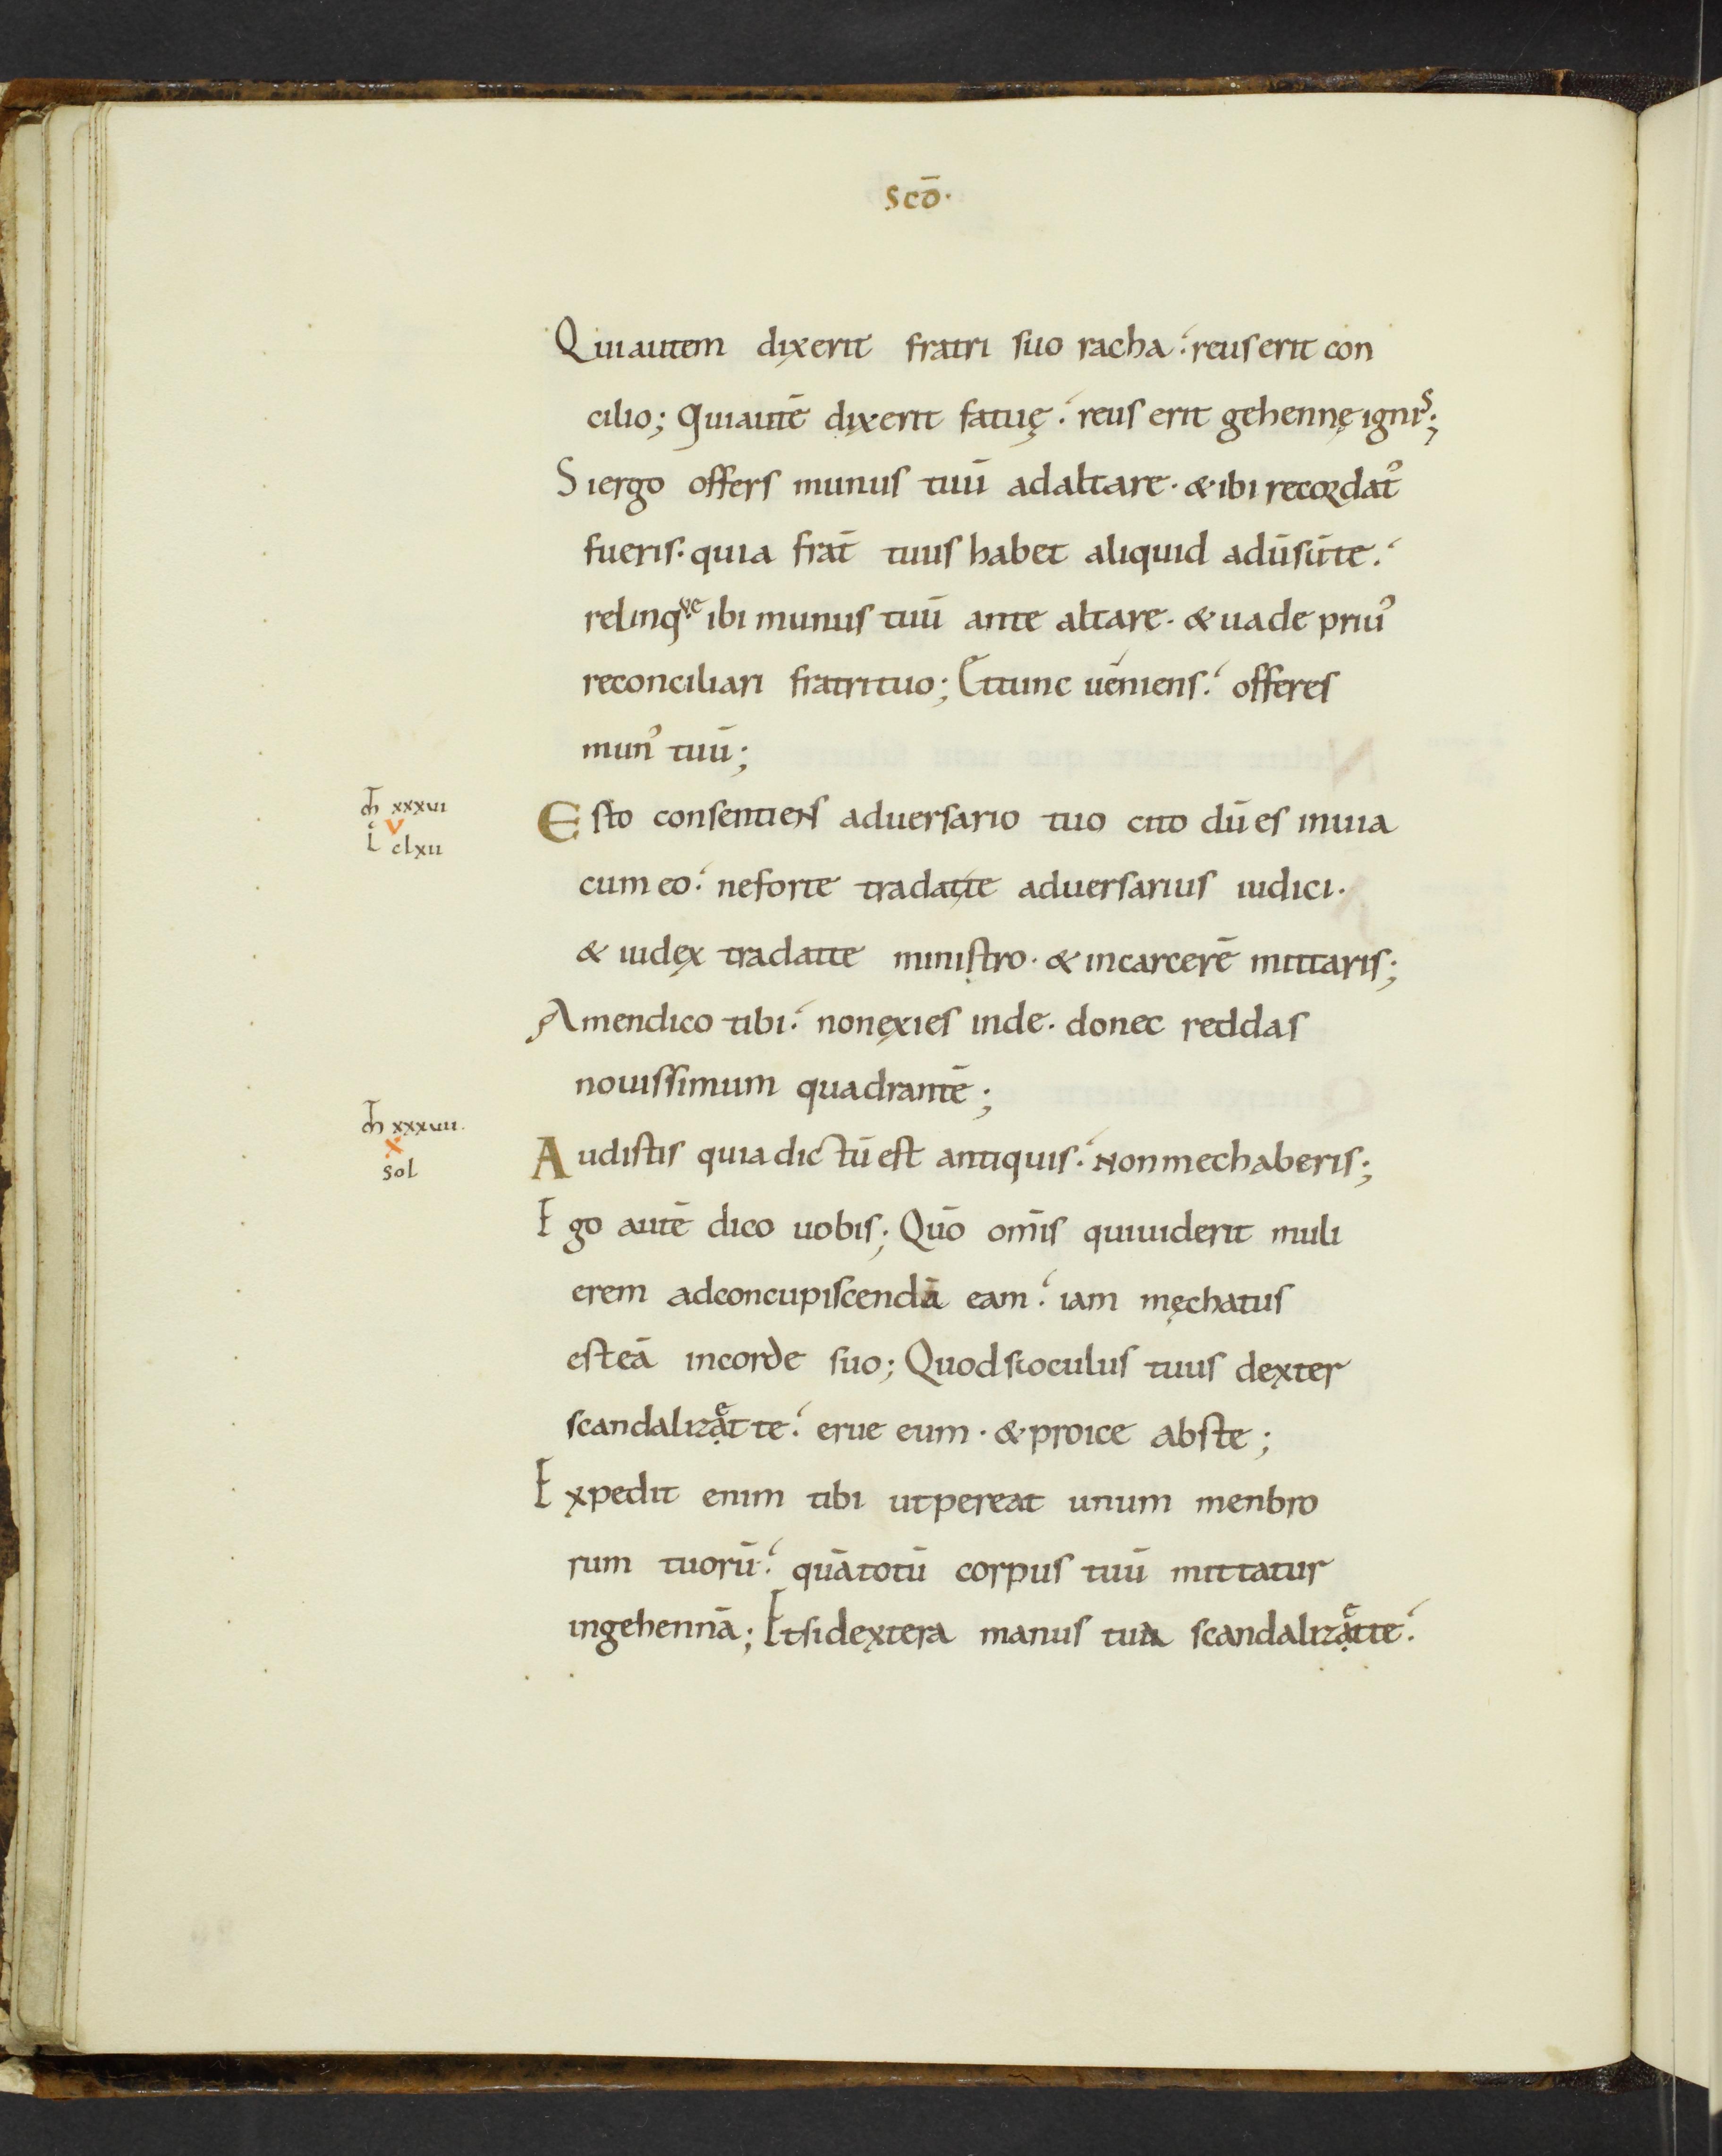 scō·
Quiautem dixerit fratri suo racha ; reus erit con
cilio; Quiautē dixerit fatuę ; reus erit gehennę ignis;
Siergo offers munus tuū adaltare · & ibi recordat᾽
fueris · quia frat̄ tuus habet aliquid adūsūte ;
relinque ibi munus tuū ante altare · & uade priu᾽
reconciliari fratrituo; Ettunc uēniens ; offeres
mun᾽ tuū;
m̄ xxxvi
v
l clxii
Esto consentiens aduersario tuo cito dū es inuia
cum eo ; neforte tradatte aduersarius iudici ·
& iudex tradatte ministro · & incarcerē mittaris;
Amendico tibi ; nonexies inde · donec reddas
nouissimum quadrantē;
m̄ xxxvii.
x
sol
Audistis quia dictū est antiquis ; Nonmechaberis;
Ego autē dico uobis; Quō om̄is quiuiderit muli
erem adconcupiscendā eam ; iam męchatus
esteā incorde suo; Quodsioculus tuus dexter
scandalizạet te ; erue eum · & proice abste;
Expedit enim tibi utpereat unum menbro
rum tuorū ; quātotū corpus tuū mittatur
ingehennā; Etsidextera manus tua scandalizạette ;